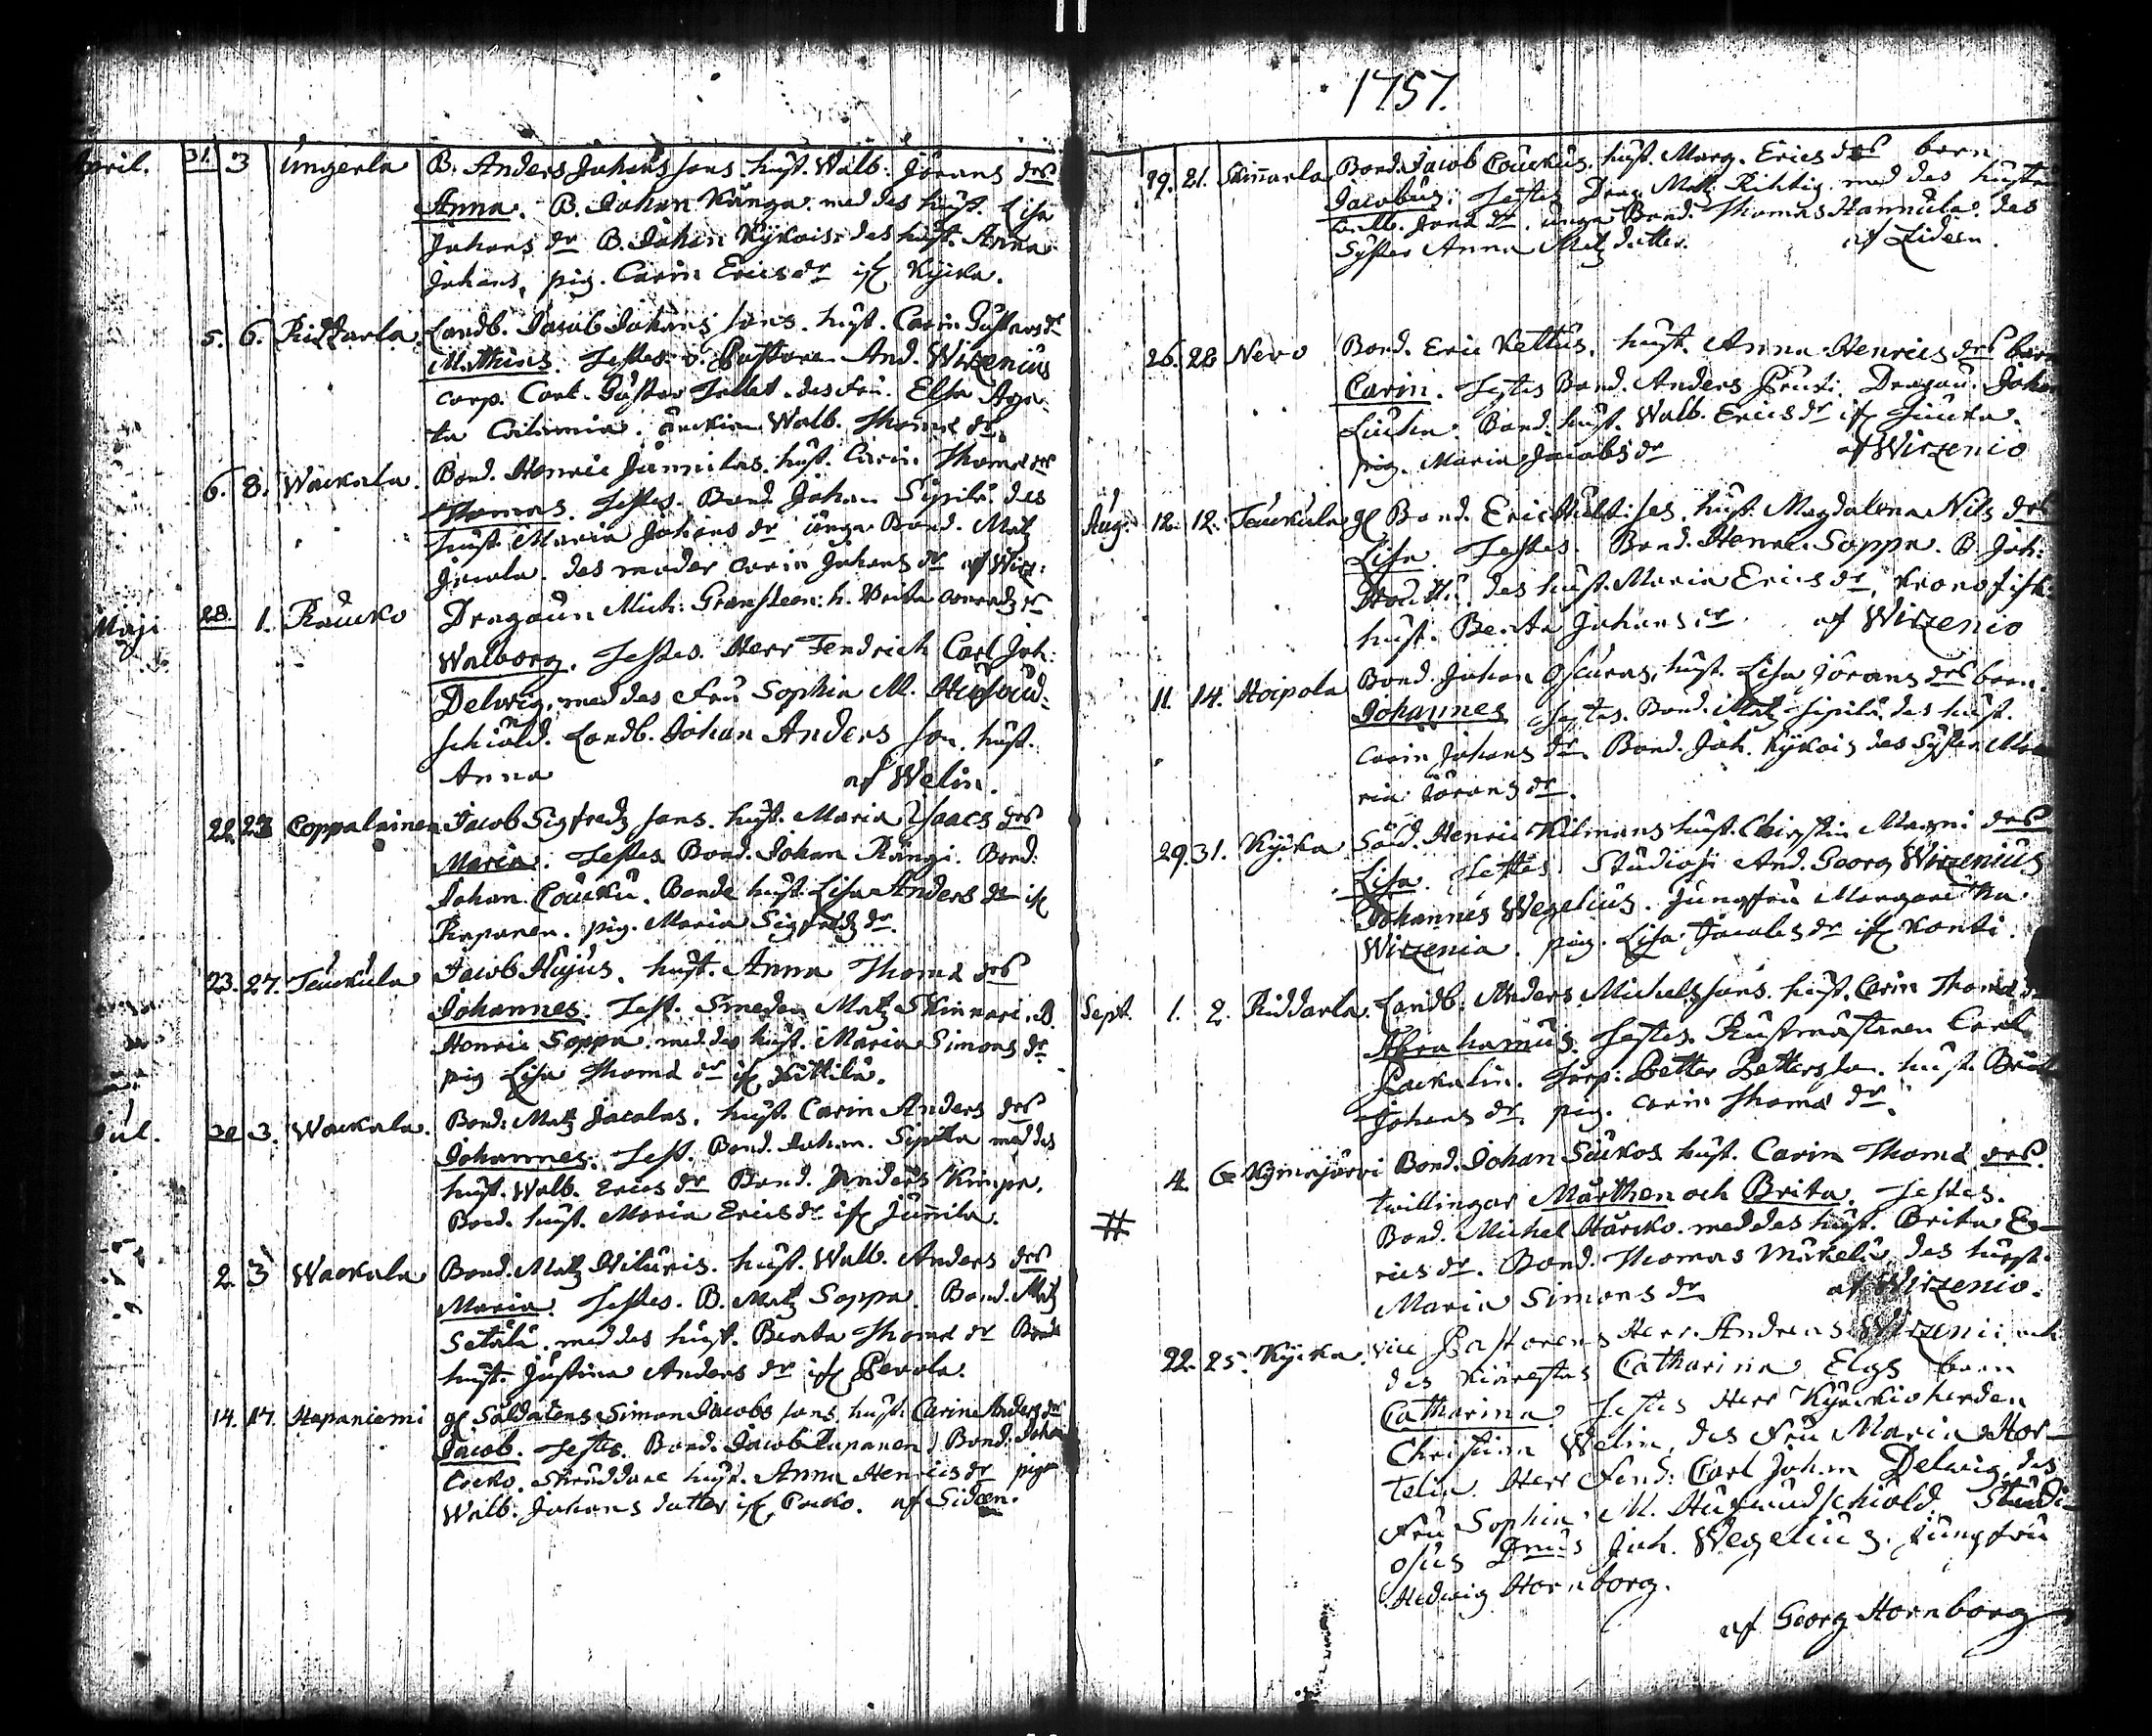 1757.
April. 31. 3 Ungerla B. Anders Johans sons. hust. Walb: Jörans drs
Anna. B. Johan Kånga med des hust. Lisa
Johans dr B. Johan Kÿkois des hust. Anna
Johans, pig. Carin Erics dr if Kÿrka.
5. 6. Riddarla Landb. Jacob Johans sons. hust. Carin Gustavs dr
Matthias. Testes. v. Pastoren And. Wirzenius
Corp. Carl. Gustav des fru. Elsa Aga-
ta Walb. Thomæ dr.
6. 8. Wackala. Bond. Henric Junnilas. hust. Carin Thomæ drs
Thomas. Testes. Bond. Johan Sipilä des
hust. Maria Johans dr unga Bond. Matz
Jacola. des moder Carin Johans dr af Wirz:
Maji 28. 1. Raucko Dragoun Mich: Gransteen: h. Brita Conradz dr
Walborg. Testes. Herr Fendrich Carl Joh:
Delwig, med des Fru Sophia M.
schiöld. Landb. Johan Anders son. hust.
Anna af Welin.
22. 23 Coppalainen Jacob Sigfredz sons. hust. Maria Isaacs drs
Maria. Testes Bond. Johan Rångi. Bond.
Johan Coucku. Bonde hust. Lisa Anders dr if
Rapanen. pig. Maria Sigfredz dr.
23. 27. Teuckula Jacob Hujus. hust. Anna Thomæ drs
Johannes. Test. Smeden Matz Skinnari. B.
Henric Soppa med des hust. Maria Simons dr
pig Lisa Thomæ dr if Kittilä.
Jul. 30 3. Wackala. Bond. Matz Jacolas. hust. Carin Anders drs
Johannes. Test. Bond. Johan. Sipila med des
hust. Walb. Erics dr Bond. Anders Kimpa.
Bond. hust. Maria Erics dr if Junnila.
2. 3 Wackala Bond. Matz Hiluris. hust. Walb. Anders drs
Maria. Testes. B. Matz Soppa. Bond. Matz
Setälä. med des hust. Beata Thomæ dr Bonde
hust. Justina Anders dr if Pevola.
14. 17. Hapaniemi gl Soldatens Simon Jacobs sons hust. Carin Anders dr
Jacob. Testes. Bond. Jacob Rapanen. Bond. Johan
Cocko. Skräddare hust. Anna Henrics dr piga
Walb. Johans dotter if Cocko. af Sidæn.
19. 21. Skinnarla Bond. Jacob Couckus. hust. Marg. Erics drs barn
Jacobus. Testes Drag. Matz Richtig. med des hustru
Walb. dr. unga Bond. Thomas Hannula. des
Syster Anna Matz dotter. af Sideen.
26. 28 Nero Bond. Eric Kettus. hust. Anna Henrics drs barn
Carin. Testes Bond. Anders Dragou. Johan
Bond. hust. Walb. Erics dr if
pig. Maria Jacobs dr af Wirzenio
Aug. 12. 12. Teuckula gl Bond. Eric hust. Magdalena Nils drs
Lisa. Testes. Bond. Henric Soppa. B Joh:
des hust. Maria Erics dr, Kronofisk.
hust. Beata Johans dr. af Wirzenio
11. 14. Hoipola Bond. Johan hust. Lisa Jörans drs barn.
Johannes Testes. Bond. Matz Sipilä des hust.
Carin Johans dr Bond. Joh. Kÿkois des Syster Ma-
ria Jörans dr.
29. 31. Kÿrka Sold. Henric Kilmans hust. Christin Magni drs
Lisa. Testes. Studiosi And. Georg Wirzenius
Johannes Wegelius. Jungfru Margaretha
Wirzenia. pig. Lisa Jacobs dr if Konti.
Sept. 1. 2. Riddarla. Landb. Anders Michels sons. hust. Carin Thomæ dr
Abrahamus. Testes. Rustmästaren Carl
Petter Pettersson. hust. Brita
Johans dr. pig. Carin Thomæ dr.
4. 6 Kÿmajärvi Bond. Johan Suckos hust. Carin Thomæ drs.
twillingar Mårthen och Brita. Testes.
# Bond. Michel Harcko. med des hust. Brita E-
rics dr. Bond. Thomas Mickelä des hust.
Maria Simons dr af Wirzenio.
22. 25. Kÿrka. vice Pastorens Herr Andreas Wirzenii och
des Kiärestas Catharina Elgs barn
Catharina Testes Herr Kÿrckioherden
Christian Welin, des Fru Maria Hor-
telia. Herr Fend: Carl Johan Delwig, des
Fru Sophia M. schiöld Studi-
osus Dnus Joh. Wegelius. Jungfru
Hedwig Hornborg.
af Georg Hornborg